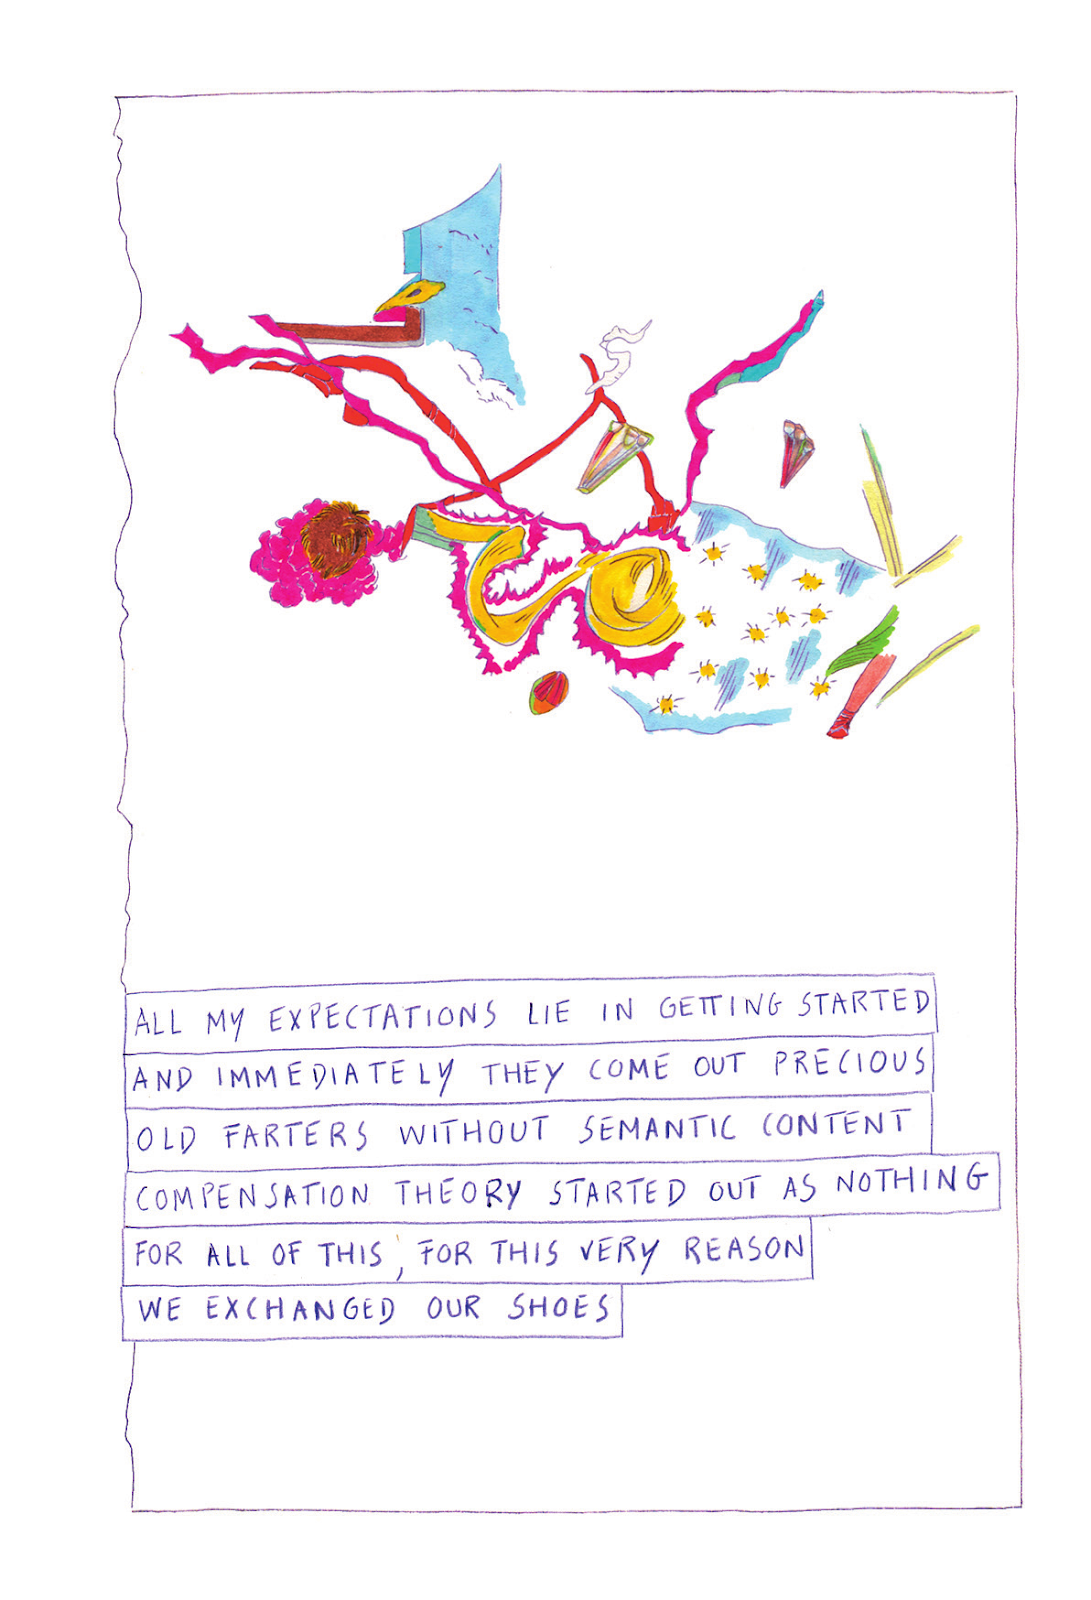 ALL MY EXPECTATIONS LIE IN GETTING STARTED
AND IMMEDIATELY THEY COME OUT PRECIOUS
OLD FARTERS WITHOUT SEMANTIC CONTENT
COMPENSATION THEORY STARTED OUT AS NOTHING
FOR ALL OF THIS, FOR THIS VERY REASON
WE EXCHANGED OUR SHOES